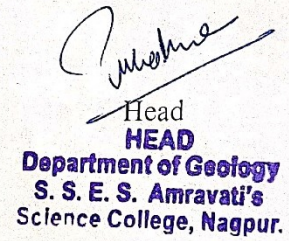 Head
HEAD
Department of Geology
S. S. E. S. Amravati's
Science College, Nagpur.